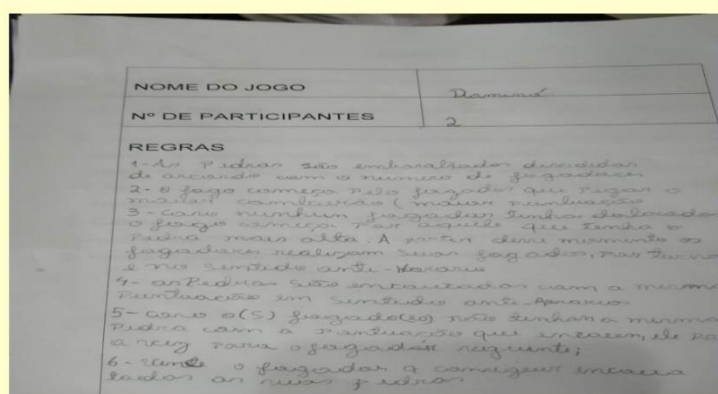 NOME DO JOGO Dominó
Nº DE PARTICIPANTES 2
REGRAS
1-As Pedras são embaralhadas divididas
de acordo com o numero de jogadores
2- O jogo começa pelo jogador que pegar o
maior (maior pontuação
3- caso nenhum jogador tenha
o jogo começa por aquele que tenha a
Pedra mais alta. A partir desse momento os
jogadores realizam suas jogadas, por turno
e no sentido anti-Horario
4- as Pedras são encaixadas com a mesma
Pontuação em sentido anti-Horario
5- caso o(s) jogador(es) não tenham a mesma
Pedra com a Pontuação que encaixem, ele
a vez para o jogador seguinte;
6- o jogador q conseguir
todas as suas pedras